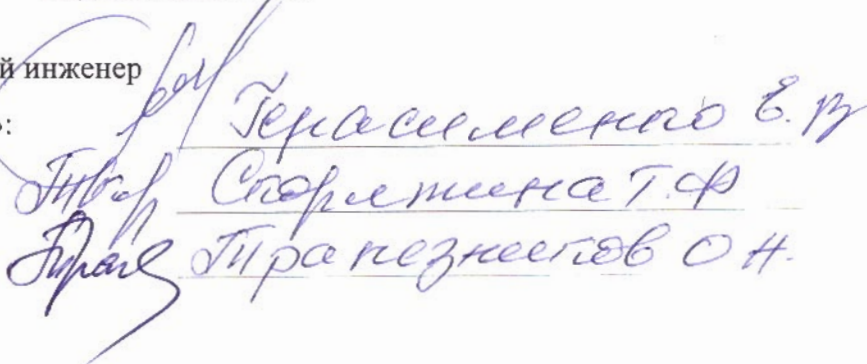 й инженер
Герасименко Е.В
Т.Ф
Трапезников О Н.